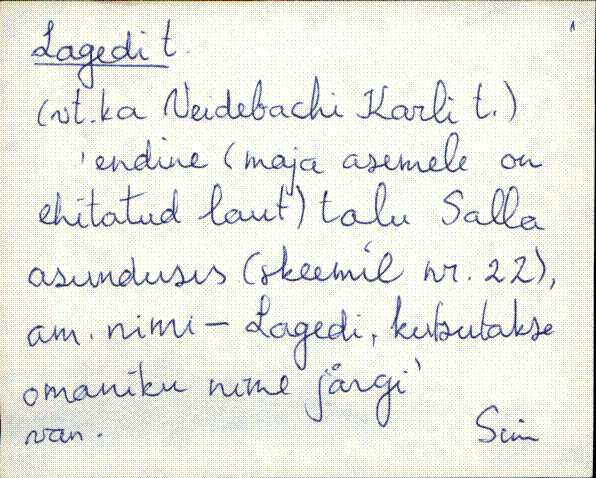 1
Lagedi t.
(vt. ka Veidebachi Karli t.)
'endine (maja asemele on
ehitatud laut) talu Salla
asunduses (skeemil nr. 22),
am. nimi – Lagedi, kutsutakse
omaniku nime järgi'
van. Sim